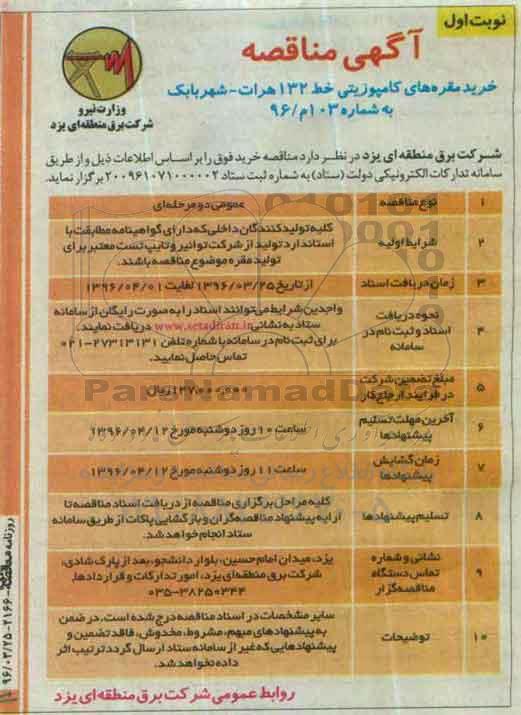 نوبت اول
آگهی مناقصه
خرید مقره‌های کامپوزیتی خط ۱۳۲ هرات - شهربابک
به شماره ۱۰۳م/۹۶
وزارت نیرو
شرکت برق منطقه‌ای یزد
شرکت برق منطقه ای یزد در نظر دارد مناقصه خرید فوق را بر اساس اطلاعات ذیل و از طریق
سامانه تدارکات الکترونیکی دولت (ستاد) به شماره ثبت ستاد ۲۰۰۹۶۱۰۷۱۰۰۰۰۰۲ برگزار نماید.
۱ نوع مناقصه عمومی دو مرحله‌ای
۲ شرایط اولیه
کلیه تولیدکنندگان داخلی که دارای گواهینامه مطابقت با
استاندارد تولید از شرکت توانیر و تایپ تست معتبر برای
تولید مقره موضوع مناقصه باشند.
۳ زمان دریافت اسناد از تاریخ ۱۳۹۶/۰۳/۲۵ لغایت ۱۳۹۶/۰۴/۰۱
۴ نحوه دریافت
اسناد و ثبت نام در
سامانه
واجدین شرایط می‌توانند اسناد را به صورت رایگان از سامانه
ستاد به نشانی www.setadiran.ir دریافت نمایند.
برای ثبت نام در سامانه با شماره تلفن ۲۷۳۱۳۱۳۱-۰۲۱
تماس حاصل نمایید.
۵ مبلغ تضمین شرکت
در فرایند ارجاع کار
۱۳۷،۰۰۰،۰۰۰ ریال
۶ آخرین مهلت تسلیم
پیشنهادها
ساعت ۱۰ روز دوشنبه مورخ ۱۳۹۶/۰۴/۱۲
۷ زمان گشایش
پیشنهادها
ساعت ۱۱ روز دوشنبه مورخ ۱۳۹۶/۰۴/۱۲
۸ تسلیم پیشنهادها
کلیه مراحل برگزاری مناقصه از دریافت اسناد مناقصه تا
ارایه پیشنهاد مناقصه‌گران و بازگشایی پاکات از طریق سامانه
ستاد انجام خواهد شد.
۹ نشانی و شماره
تماس دستگاه
مناقصه‌گزار
یزد، میدان امام حسین، بلوار دانشجو، بعد از پارک شادی،
شرکت برق منطقه‌ای یزد، امور تدارکات و قراردادها.
۰۳۵-۳۸۲۵۰۳۴۴
۱۰ توضیحات
سایر مشخصات در اسناد مناقصه درج شده است. در ضمن
به پیشنهادهای مبهم، مشروط، مخدوش، فاقد تضمین و
پیشنهادهایی که غیر از سامانه ستاد ارسال گردد ترتیب اثر
داده نخواهد شد.
روابط عمومی شرکت برق منطقه‌ای یزد
ParsNamadData
۹۶/۰۳/۲۵-۲۱۶۶